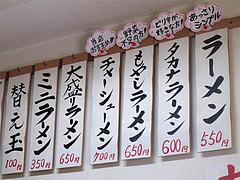 あっさりシンプル
ラーメン
550円
ピリ辛が好きな方!
タカナラーメン
600円
野菜不足の方!
もやしラーメン
650円
当店おすすめ!
チャーシューメン
700円
大盛りラーメン
650円
ミニラーメン
350円
替え玉
100円